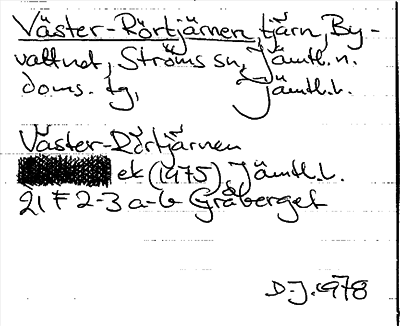 Väster-Rörtjärnen, tjärn, By-
vattnet, Ströms sn, Jämtl.n.
doms. tg, Jämtl.l.
Väster-Rörtjärnen
ek (1975), Jämtl.l.
21 F 2-3 a-b Gråberget
D-J. 1978